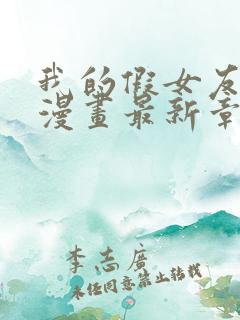 我的假女友
漫畫最新章
李志廣
未经同意禁止转载